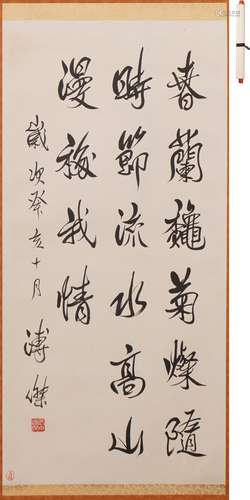 春蘭龝菊燦隨
時節流水高山
漫移我情
歲次癸亥十月
溥傑